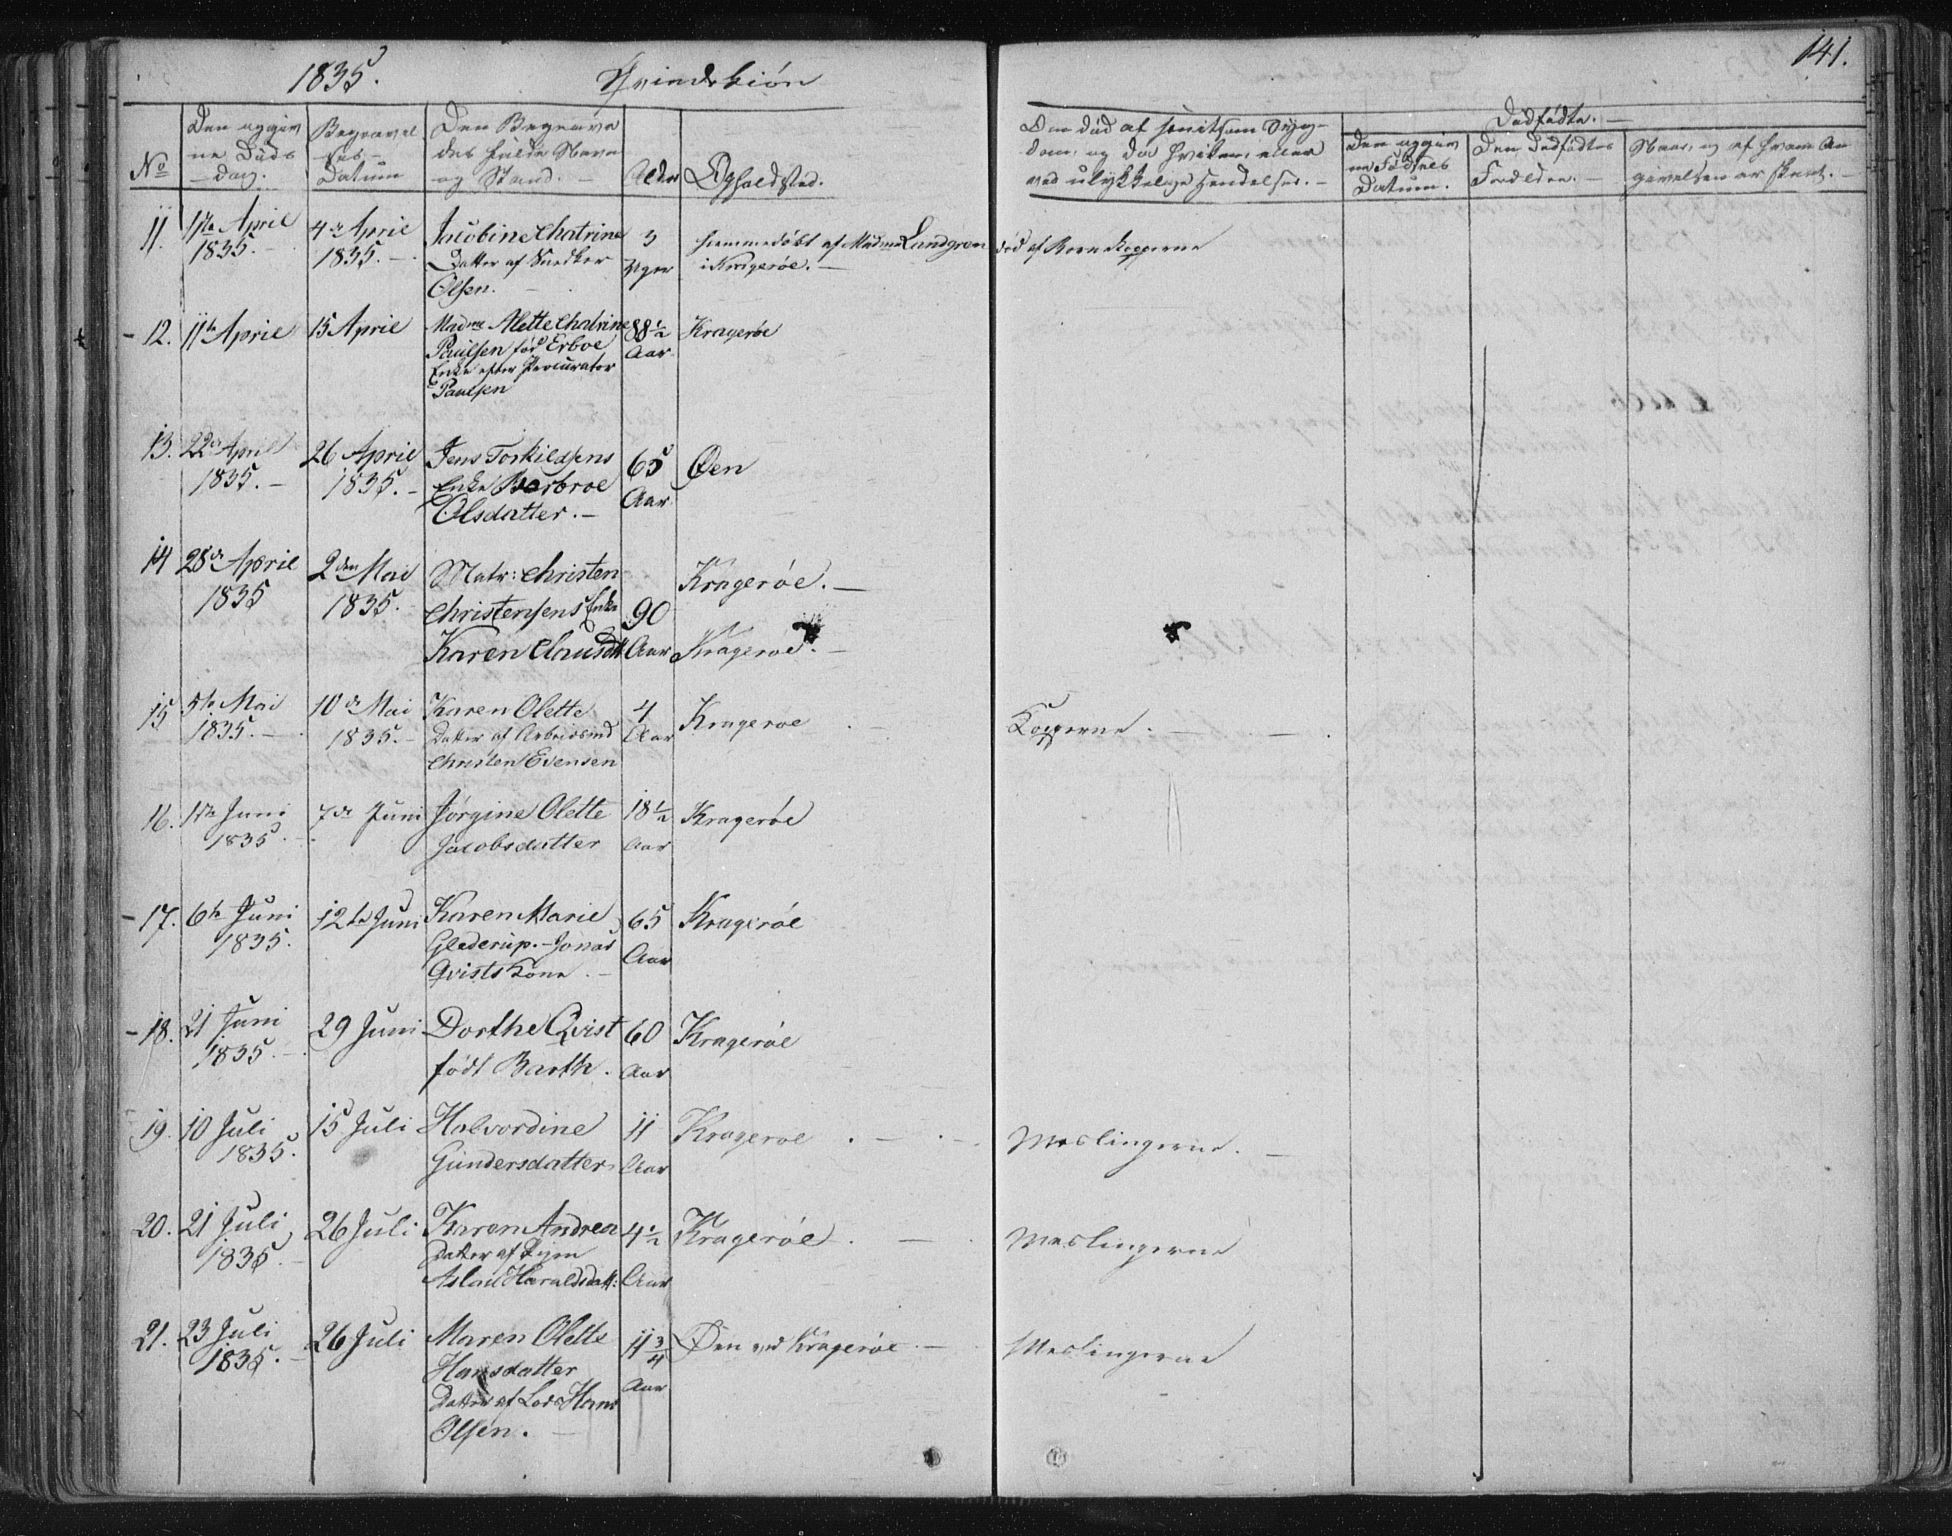 1835. Qvindekiön
141.
No
Den opgiv
ne Döds
-dag.
Begravel
ses-
Datum
Den Begrave
des fulde Navn
og Stand. -
Alder
Opholdsted.
ved ulykkelige Hendelser. -
Dødfödte. -
Den opgiv
ne Födsels
Datum.
Den Dödfödtes
Forældre. -
11. 1ste April
1835.
4de April
1835. -
Jacobine Chatrine
Datter af Snedker
Olsen.
3
Uger
hiemmedöbt af Madme Lundgren
i Kragerøe. -
död af Börnekopperne
- 12. 11te April
15 April
Madme Alette Chatrine
Paulsen fød Erboe
Enke efter Procurator
Paulsen
88 1/2
Aar
Kragerøe
13. 22de April
1835. -
26 April
1835. -
Jens Torkildsens
Enke Barbroe
Olsdatter. -
65
Aar
Øen
14 28de April
1835
2den Mai
1835.
Matr: Christen
Christensens Enke
Karen Clausdtt
90
Aar
Kragerøe. -
Kragerøe. -
15 5te Mai
1835. -
10de Mai
1835. -
Karen Olette
Datter af Arbeidsmd
Christen Evensen
4
Aar
Kragerøe
Kopperne. -
16. 1ste Juni
1835.
7de Juni
Jørgine Olette
Jacobsdatter
18 1/2
Aar
Kragerøe
- 17. 6te Juni
1835.
12te Juni
Karen Marie
Gladerup. - Jonas
Qvists Kone. -
65
Aar
Kragerøe
- 18. 21 Juni
1835. -
29 Juni
Dorthe Qvist
født Barth.
60
Aar
Kragerøe
19. 10 Juli
1835.
15 Juli
Halvordine
Gundersdatter
11
Aar
Kragerøe. -
Meslingerne. -
20. 21 Juli
1835. -
26 Juli
Karen Andrea
Datter af Pigen
Aslaug Haraldsdatt:
4 1/2
Aar
Kragerøe. -
Meslingerne
21. 23 Juli
1835. -
26 Juli
Maren Olette
Hansdatter
Datter af Lods Hans
Olsen. -
11 3/4
Aar
Øen ved Kragerøe. -
Meslingerne